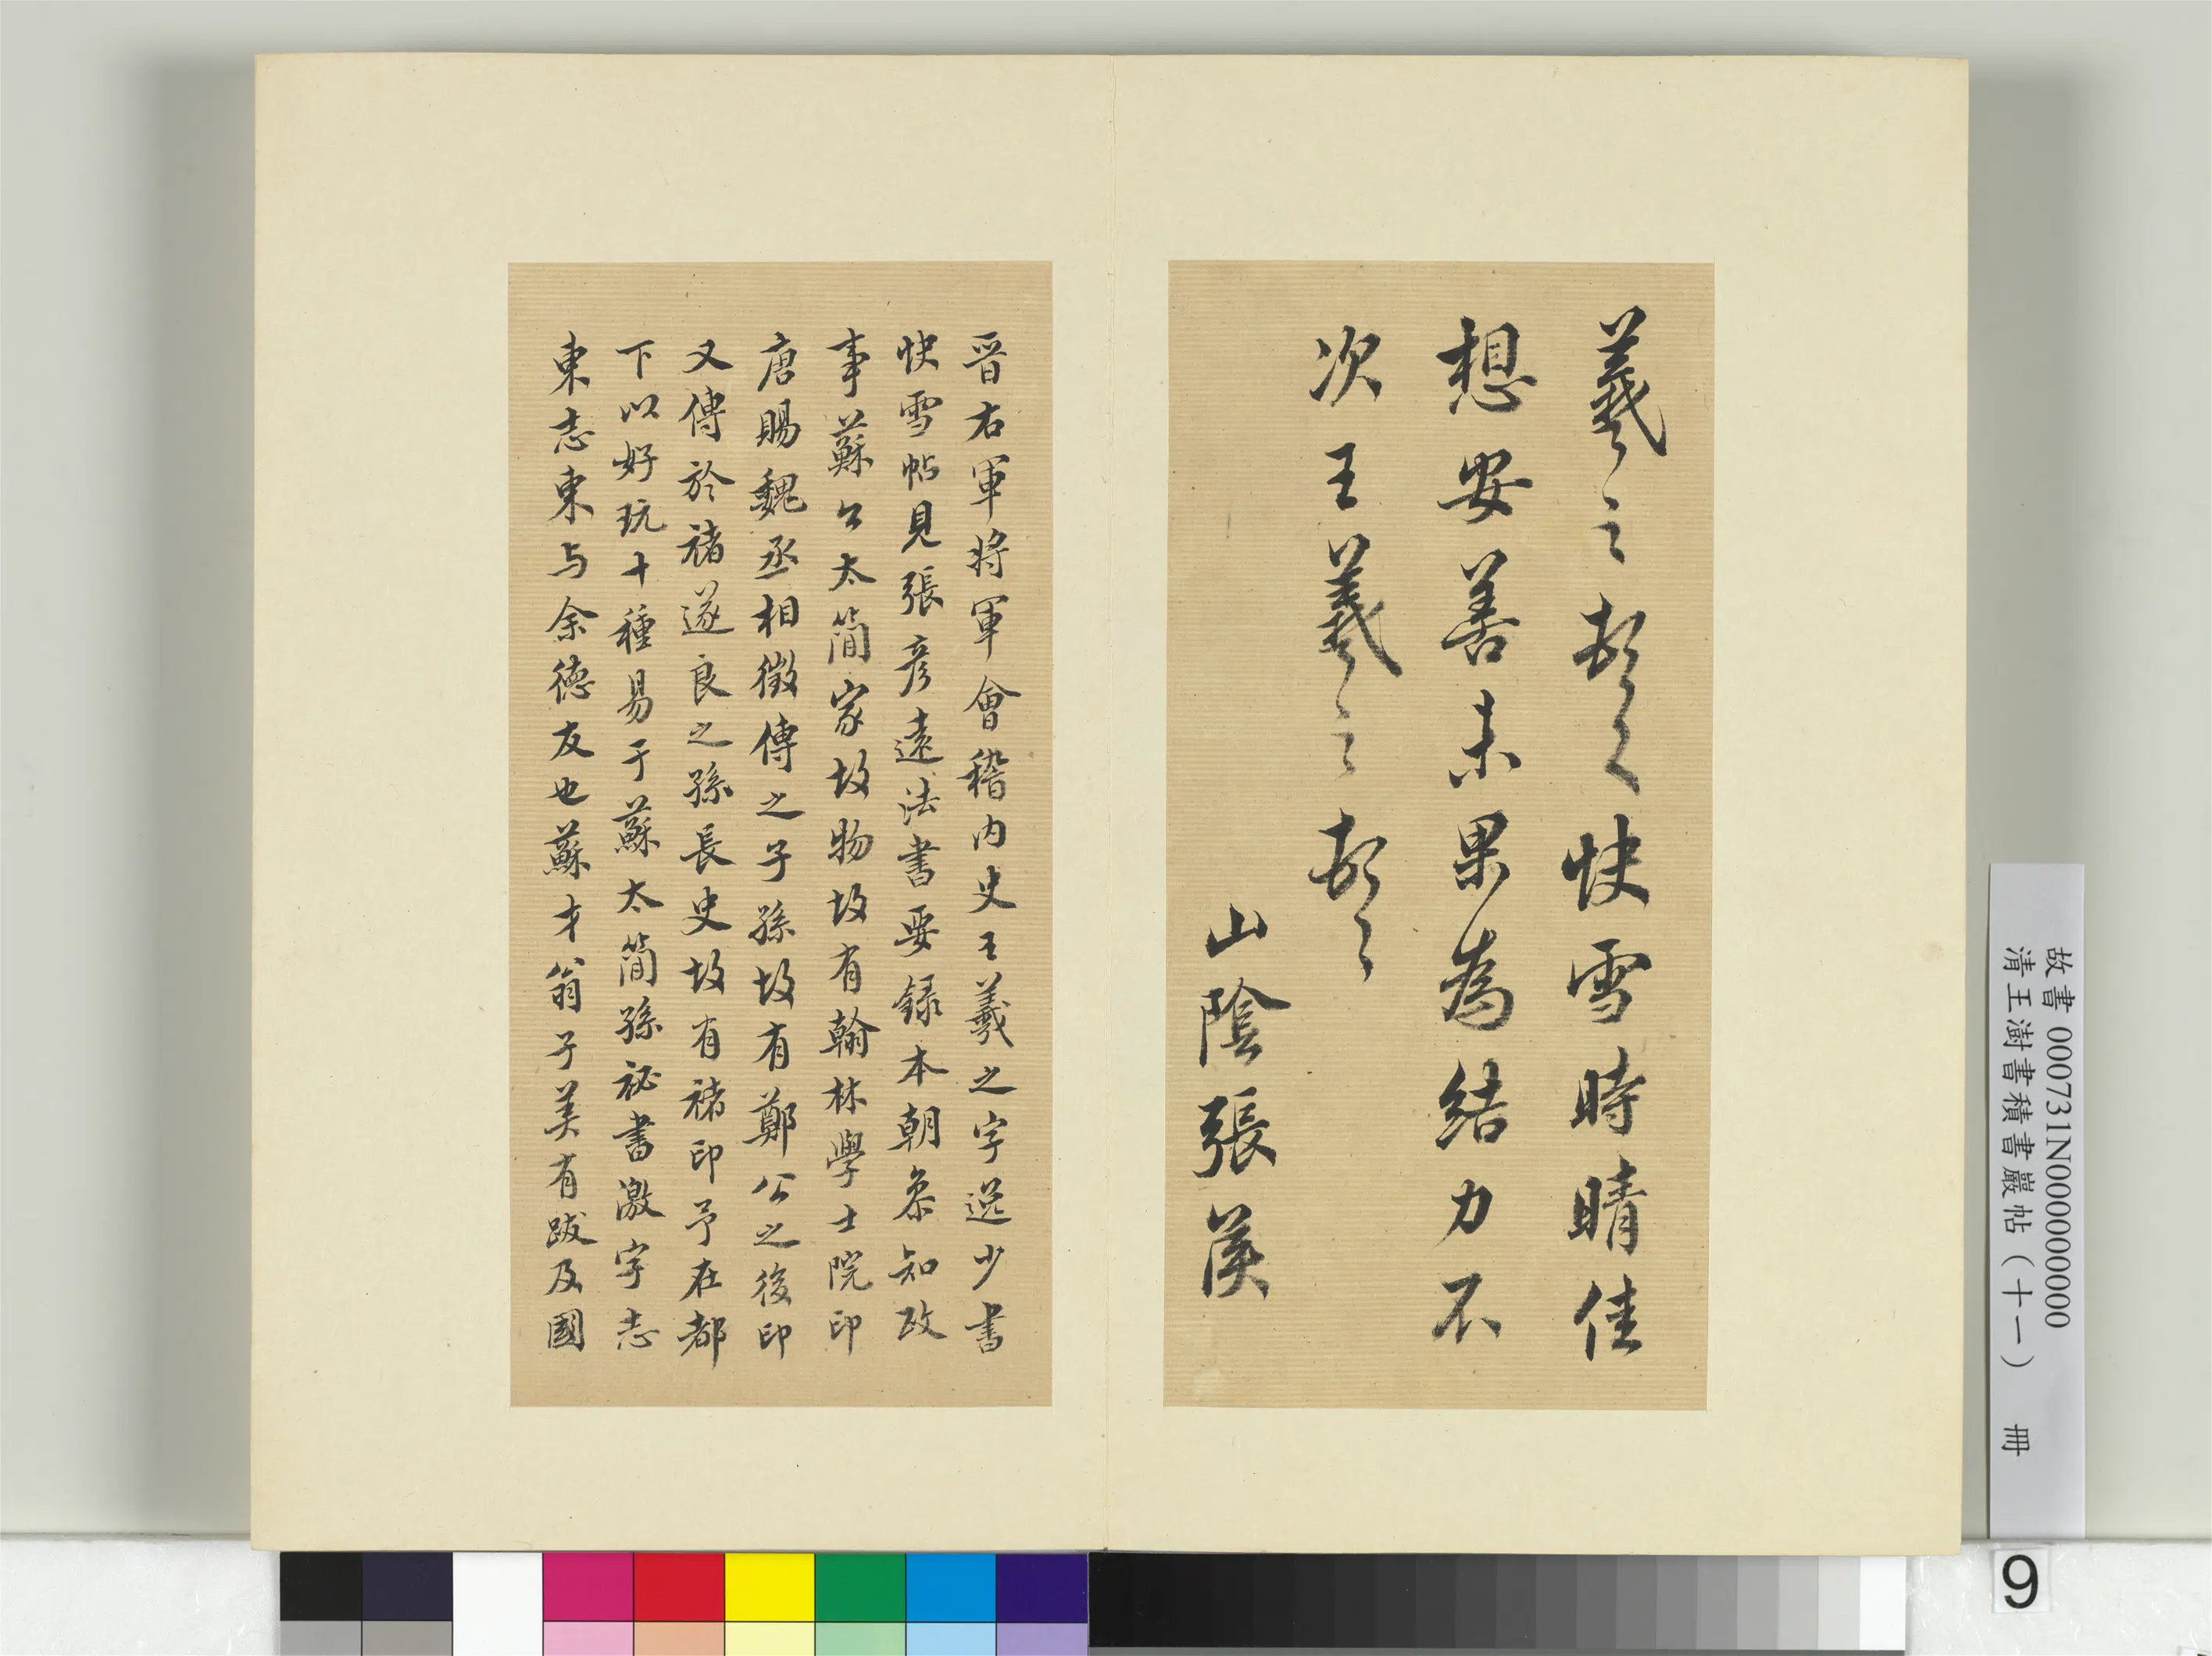 羲之頓首快雪時晴佳
想安善未果為結力不
次王羲之頓首
山陰張侯
晉右軍將軍會稽內史王羲之字逸少書
快雪帖見張彥遠法書要錄本朝參知政
事蘇公太簡家故物故有翰林學士院印
唐賜魏丞相徵傳之子孫故有鄭公之後印
又傳於褚遂良之孫長史故有褚印予在都
下以好玩十種易于蘇太簡孫祕書激字志
東志東与余德友也蘇才翁子美有跋及國
故書 000731N000000000
清王澍書積書巖帖（十一） 冊
9